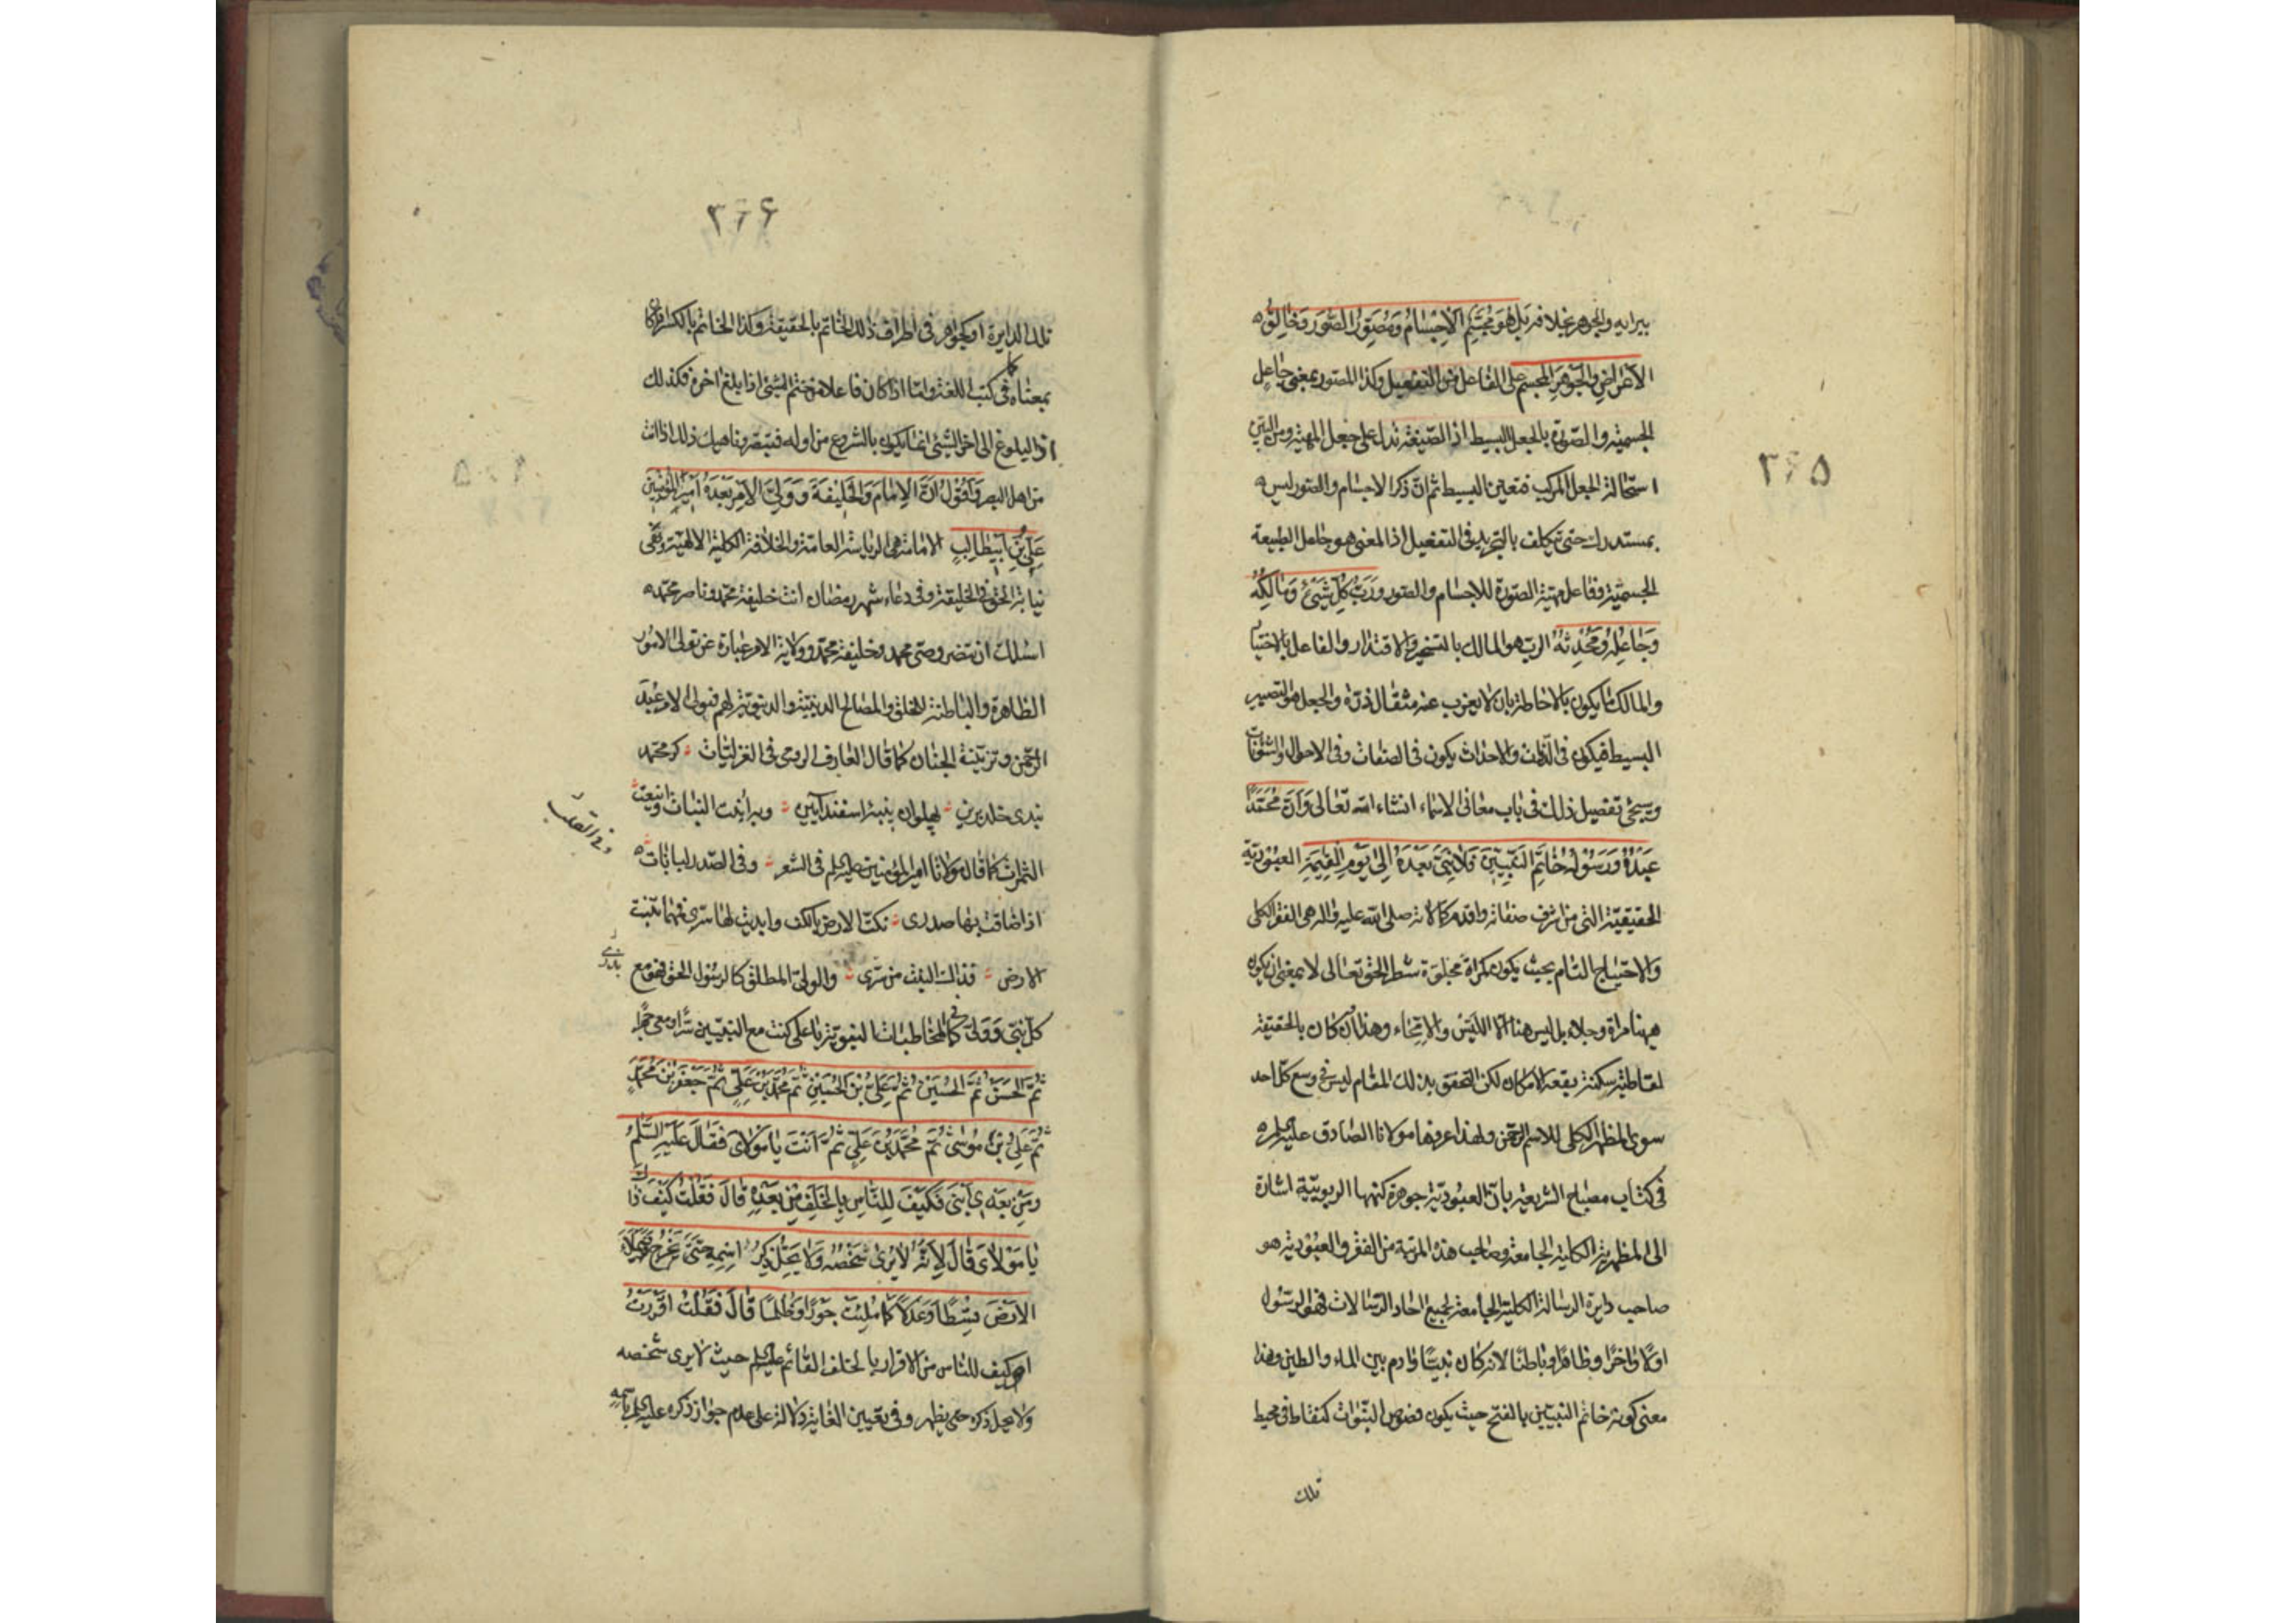 ٣٦۵
بل هو مجسّم الاجسام ومصوّر الصور وخالق
الاعراض والجواهر المجسم على الفاعل من التفعيل وكذا المصور بمعنى جاعل
الجسمية والصورة بالجعل البسيط اذ الصيغة تدل على جعل المهية ومن البيّن
استحالة الجعل المركب فتعين البسيط ثم انّ ذكر الاجسام والصور ليس
بمستدرك حتى يتكلف بالتجريد فى التفعيل اذ المعنى هو جاعل الطبيعة
الجسمية وفاعل مهية الصورة للاجسام والصور وَرَبّ كُلِّ شَيْءٍ وَمٰالِكُه
وَجٰاعِلُه وَمُحْدِثُهُ الرب هو المالك بالتسخير والاقتدار والفاعل بالاختيار
والمالك ما يكون بالاحاطة بان لا يعزب عنه مثقال ذرّة والجعل هو التصيير
البسيط فيكون فى الذّات والاحداث يكون فى الصفات وفى الاحوال والشئونات
وسيجئ تفصيل ذلك فى باب معانى الاسماء انشاء الله تعالى وَاَنَّ مُحَمَّدًا
عَبْدُهُ وَرَسُولُهُ خٰاتَمِ النَبِيّينَ فَلاٰ نَبِىَّ بَعْدَهُ اِلىٰ يَوْمِ القِيٰمَةِ العبودية
الحقيقيّة التى من اشرف صفاته واقدم كمالاته صلى الله عليه واله هى الفقر الكلى
والاحتياج التام بحيث يكون كمرآة مجلوّة شطر الحق تعالى لا بمعنى ان يكون
هيهنا مرآة وجلاء بل ليس هنا الّا الليس والامّحاء وهذا وان كان بالحقيقة
لقاطبة سكنة بقعة الامكان لكن التحقق بذلك المقام ليس فى وسع كل احد
سوى المظهر الكلى للاسم الرحمن ولهذا عرفها مولانا الصادق عليه السلم
فى كتاب مصباح الشريعة بانّ العبوديّة جوهرة كنهها الربوبيّة اشارة
الى المظهرية الكلية الجامعة وصاحب هذه المرتبة من الفقر والعبودية هو
صاحب دايرة الرسالة الكلية الجامعة لجميع احاد الرسالات فهو الرسول
اولًا واخرًا وظاهرًا وباطنًا لانه كان نبيًّا وادم بين الماء والطين وهذا
معنى كونه خاتم النبيين بالفتح حيث يكون فصوص النبّوات كنقاط فى محيط
تلك
٣٦۶
تلك الدايرة او كجواهر فى اطراف ذلك الخاتم بالحقيقة وكذا الخاتم بالكسر
بمعناه كما فى كتب اللغة وامّا اذا كان فاعلا من ختم الشئ اذا بلغ اخره فكذلك
اذ البلوغ الى اخر الشئ انما يكون بالشروع من اوله فتبصر وناهيك ذلك اذا كنت
من اهل البصر وَاَقُولُ اِنَّ الاِمٰامَ وَالخَليفَةَ وَوَلِىَّ الاَمْرِ بَعْدَهُ اَميرُ المُؤْمِنينَ
عَلِىُّ بْنُ اَبيطٰالِبٍ الامامة هى الرياسة العامّة والخلافة الكلية الالهية وهى
نيابة الحق فى الخليقة وفى دعاء شهر رمضان انت خليفة محمد وناصر محمد
اسئلك ان تنصر وصى محمد وخليفة محمد وولاية الامر عبارة عن تولى الامور
الظاهرة والباطنة للخلق والمصالح الدينية والدنيوية لهم
الرحمن وتزيينة الجنان كما قال العارف الرومى فى الغزليات كر محمد
وبه اينعت النبات وانيعت
الثمرات كما قال مولانا امير المؤمنين عليه السلم فى الشعر وفى الصدر لبانات
وفى القلب
اذا ضاقت بها صدرى نكتّ الارض بالكف وابديت لها سرّى فمهما تنبت
الارض فذاك النبت من سرى والولى المطلق كالرسول الحق فهو مع
بذرى
كل نبى وولى كما فى المخاطبات النبوية يا على كنت مع النبيين سرًّا ومعى جهرًا
ثُمَّ الحَسَنُ ثُمَّ الحُسَيْنُ ثُمَّ عَلِىُّ بْنُ الحُسَيْنِ ثُمَّ مُحَمَّدُ بْنُ عَلِىٍّ ثُمَّ جَعْفَرُ بْنُ مُحَمَّدٍ
ثُمَّ عَلِىُّ بْنُ مُوسىٰ ثُمَّ مُحَمَّدُ بْنُ عَلِىٍّ ثُمَّ اَنْتَ يٰا مَوْلاٰىَ فَقٰالَ عَلَيْهِ السَّلٰمُ
وَمِنْ بَعْدى ابْنى فَكَيْفَ لِلنّٰاسِ بِالخَلَفِ مِنْ بَعْدِهِ قٰالَ فَقُلْتُ كَيْفَ ذٰاكَ
يٰا مَوْلاٰىَ قٰالَ لِاَنَّهُ لاٰ يُرىٰ شَخْصُهُ وَلاٰ يَحِلُّ ذِكْرُ اسْمِهِ حَتّىٰ يَخْرُجَ فَيَمْلَأَ
الاَرْضَ قِسْطًا وَعَدْلاً كَمٰا مُلِئَتْ جَوْرًا وَظُلْمًا قٰالَ فَقُلْتُ اَقْرَرْتُ
اى كيف للناس من الاقرار بالخلف القائم عليه السلم حيث لا يرى شخصه
ولا يحل ذكره حتى يظهر وفى تعيين الغاية دلالة على عدم جواز ذكره عليه السلم باسمه